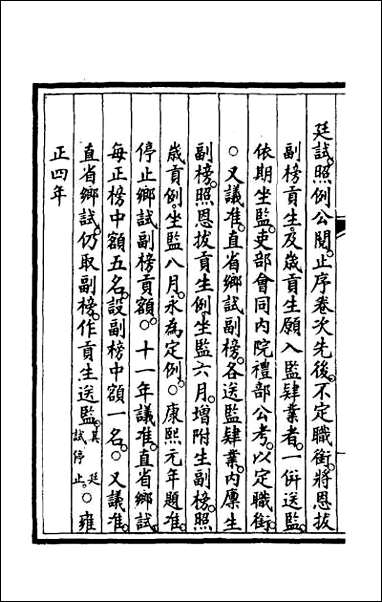 廷試。照例公閱。止序卷次先後。不定職銜。將恩拔
副榜貢生。及歲貢生願入監肄業者。一併送監。
依期坐監。吏部會同內院禮部公考。以定職銜。
○又議准。直省鄉試副榜。各送監肄業。內廩生
副榜。照恩拔貢生例。坐監六月。增附生副榜。照
歲貢例。坐監八月。永為定例。○康熙元年題准。
停止鄉試副榜貢額。○十一年議准。直省鄉試。
每正榜中額五名。設副榜中額一名。○又議准。
直省鄉試。仍取副榜。作貢生送監。其廷試停止。○雍
正四年